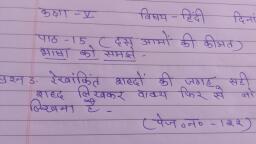 कक्षा - V विषय - हिंदी दिनां
पाठ - 15 ( दस आमों की कीमत )
भाषा को समझें -
प्रश्न 3. रेखांकित शब्दों की जगह सही
शब्द लिखकर वाक्य फिर से
लिखना है -
( पेज. नं० - 122 )